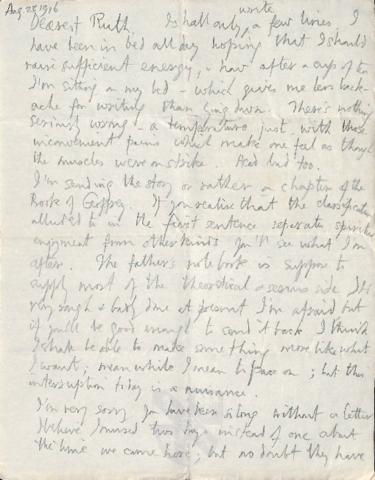 Aug 25, 1916
Dearest Ruth, I shall only write a few lines. I
have been in bed all day hoping that I should
raise sufficient energy, - now after a cup of tea
I'm sitting on my bed - which gives me less back-
ache for writing than lying down. There's nothing
seriously wrong - a temperature just, with those
inconvenient pains which make one feel as though
the muscles were on strike. And too.
I'm sending the story or rather a chapter of the
Book of Geoffrey. If you realise that the classification
alluded to in the first sentence separates spiritual
enjoyment from other kinds you'll see what I'm
after. The father's notebook is suppose to
supply most of the theoretical & serious side. It's
very rough & badly done at present I'm afraid but
if you'll be good enough to send it back I think
I shall be able to make something more like what
I want; meanwhile I mean to on; but this
interruption today is a nuisance.
I'm very sorry you have been so long without a letter
I believe I missed two days instead of one about
the time we came here; but no doubt they have